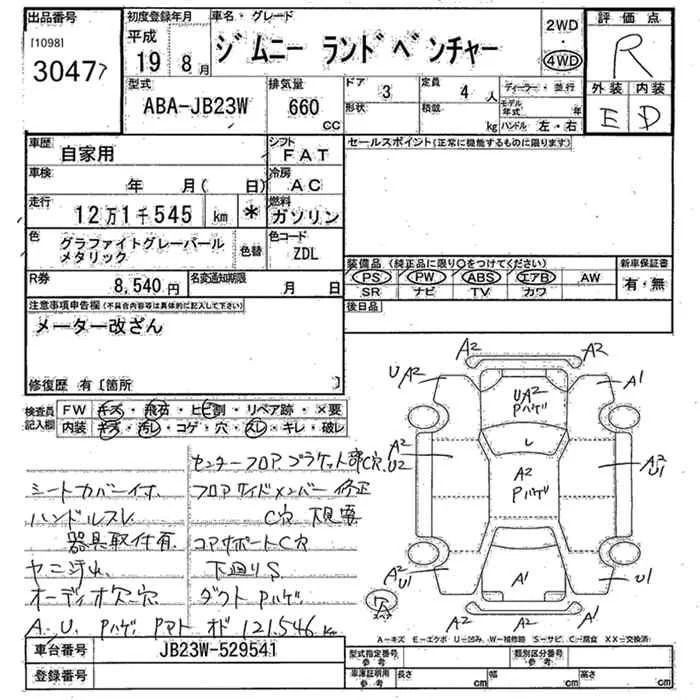 出品番号
[1098]
3047
初度登録年月
平成
19 8月
車名・グレード
ジムニー ランドベンチャー
2WD
・
4WD
評価点
R
外装 内装
E D
型式
ABA-JB23W
排気量
660
cc
ドア
3
形状
定員
4 人
積載
kg
ディーラー・並行
モデル年式 年
ハンドル 左・右
車歴
自家用
シフト
FAT
車検
年 月( 日)
冷房
AC
走行
12万1千545 km *
燃料
ガソリン
色
グラファイトグレーパール
メタリック
色替
色コード
ZDL
R券
8,540円
名変通知期限
月 日
セールスポイント(正常に機能するものに限ります)
装備品(純正品に限り○をつけてください)
PS・PW・ABS・エアB・AW
SR ナビ TV カワ
新車保証書
有・無
後日品
注意事項申告欄(不具合内容等は具体的に記入して下さい)
メーター改ざん
修復歴 有〔箇所 〕
検査員
記入欄
FW キズ・飛石・ヒビ割・リペア跡・×要
内装 キズ・汚レ・コゲ・穴・スレ・キレ・破レ
センターフロアブラケット部C穴
シートカバー付
フロアサイドメンバー修正
ハンドルスレ
C穴 下見要
器具取付有
コアサポートC穴
ヤニ汚れ
下廻りS
オーディオ欠品穴
ダクトPハゲ
A.U. Pハゲ Pマト オド 121.546km
A2 A2
U A2 A1
UA2
Pハゲ
A2
U2
A2
Pハゲ
A2
U1
A2
U1
A1
U1
A2 A2
スペア
A-キズ E-エクボ U-凹み W-補修跡 S-サビ C-腐食 XX-交換済
車台番号
JB23W-529541
登録番号
型式指定番号
参考
類別区分番号
参考
車庫証明用
参考
長さ cm
幅 cm
高さ cm